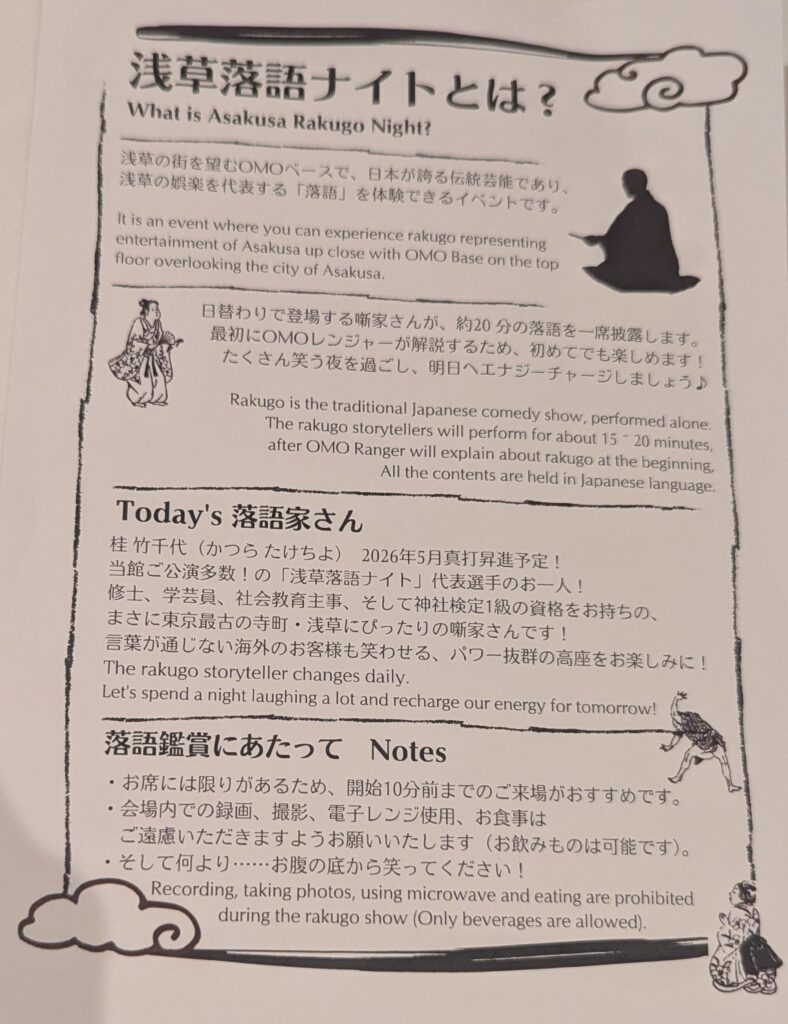 浅草落語ナイトとは？
What is Asakusa Rakugo Night?
浅草の街を望むOMOベースで、日本が誇る伝統芸能であり、
浅草の娯楽を代表する「落語」を体験できるイベントです。
It is an event where you can experience rakugo representing
entertainment of Asakusa up close with OMO Base on the top
floor overlooking the city of Asakusa.
日替わりで登場する噺家さんが、約20 分の落語を一席披露します。
最初にOMOレンジャーが解説するため、初めてでも楽しめます！
たくさん笑う夜を過ごし、明日へエナジーチャージしましょう♪
Rakugo is the traditional Japanese comedy show, performed alone.
The rakugo storytellers will perform for about 15 ~ 20 minutes,
after OMO Ranger will explain about rakugo at the beginning,
All the contents are held in Japanese language.
Today's 落語家さん
桂 竹千代（かつら たけちよ） 2026年5月真打昇進予定！
当館ご公演多数！の「浅草落語ナイト」代表選手のお一人！
修士、学芸員、社会教育主事、そして神社検定1級の資格をお持ちの、
まさに東京最古の寺町・浅草にぴったりの噺家さんです！
言葉が通じない海外のお客様も笑わせる、パワー抜群の高座をお楽しみに！
The rakugo storyteller changes daily.
Let's spend a night laughing a lot and recharge our energy for tomorrow!
落語鑑賞にあたって Notes
・お席には限りがあるため、開始10分前までのご来場がおすすめです。
・会場内での録画、撮影、電子レンジ使用、お食事は
ご遠慮いただきますようお願いいたします（お飲みものは可能です）。
・そして何より……お腹の底から笑ってください！
Recording, taking photos, using microwave and eating are prohibited
during the rakugo show (Only beverages are allowed).